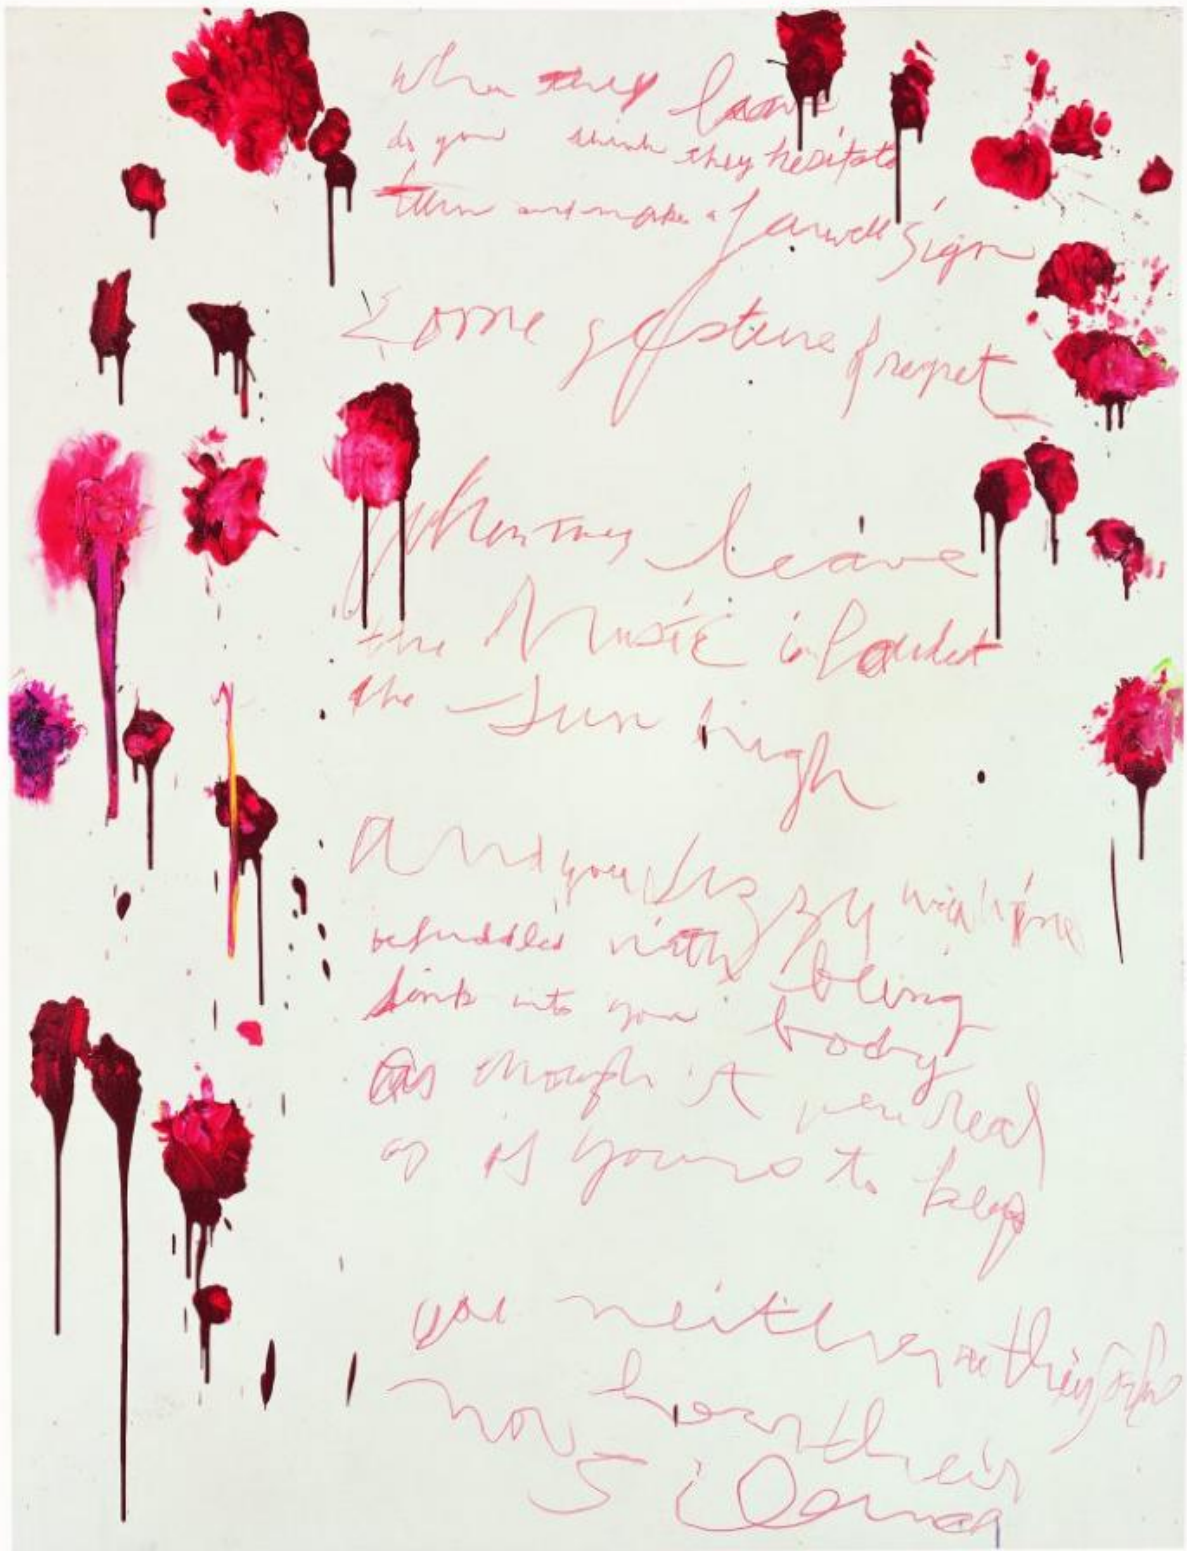 When they leave
do you think they hesitate
turn and make a farwell sign
Some gesture of regret
When they leave
the Music is loudest
the Sun high
And you dizzy with wine
befuddled with being
sink into your body
as though it were real
as if yours to keep
you neither see their
nor hear their
Silence